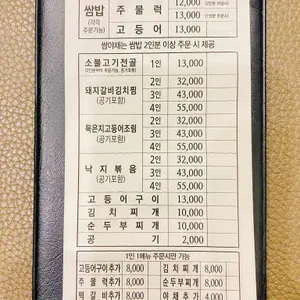 12,000
쌈밥 주물럭 13,000
(각각 주문가능) 고등어 13,000
쌈야채는 쌈밥 2인분 이상 주문 시 제공
소불고기전골 1인 13,000
2인 32,000
돼지갈비김치찜 3인 43,000
(공기포함) 4인 55,000
2인 32,000
묵은지고등어조림 3인 43,000
(공기포함) 4인 55,000
2인 32,000
낙지볶음 3인 43,000
(공기포함) 4인 55,000
고등어구이 13,000
김치찌개 10,000
순두부찌개 10,000
공기 2,000
1인 1메뉴 주문시만 가능
고등어구이추가 8,000 김치찌개 8,000
주물럭추가 8,000 순두부찌개 8,000
떡갈비추가 8,000 야채추가 4,000